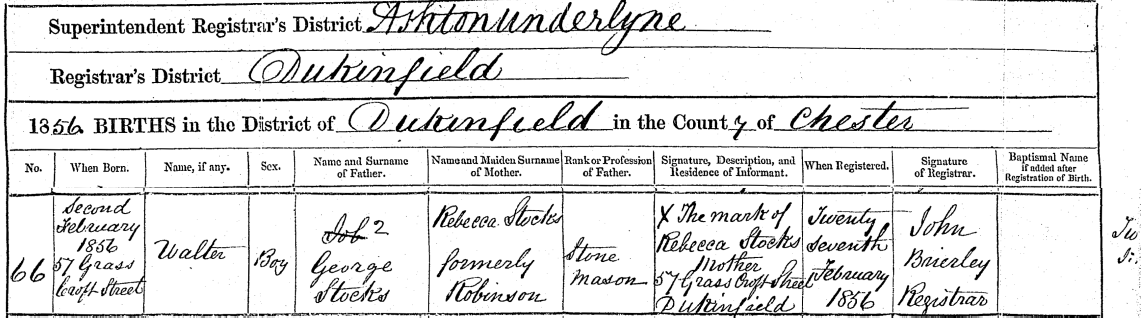 Superintendent Registrar's District Ashton under lyne
Registrar's District Dukinfield
1856 BIRTHS in the District of Dukinfield in the County of Chester
No.
When Born.
Name, if any.
Sex.
Name and Surname
of Father.
Name and Maiden Surname
of Mother.
Rank or Profession
of Father.
Signature, Description, and
Residence of Informant.
When Registered.
Signature
of Registrar.
Baptismal Name
if added after
Registration of Birth.
66
Second
February
1856
57 Grass
Croft Street
Walter
Boy
Job 2
George
Stocks
Rebecca Stocks
formerly
Robinson
Stone
Mason
X The mark of
Rebecca Stocks
Mother
57 Grass Croft Street
Dukinfield
Twenty
Seventh
February
1856
John
Brierley
Registrar